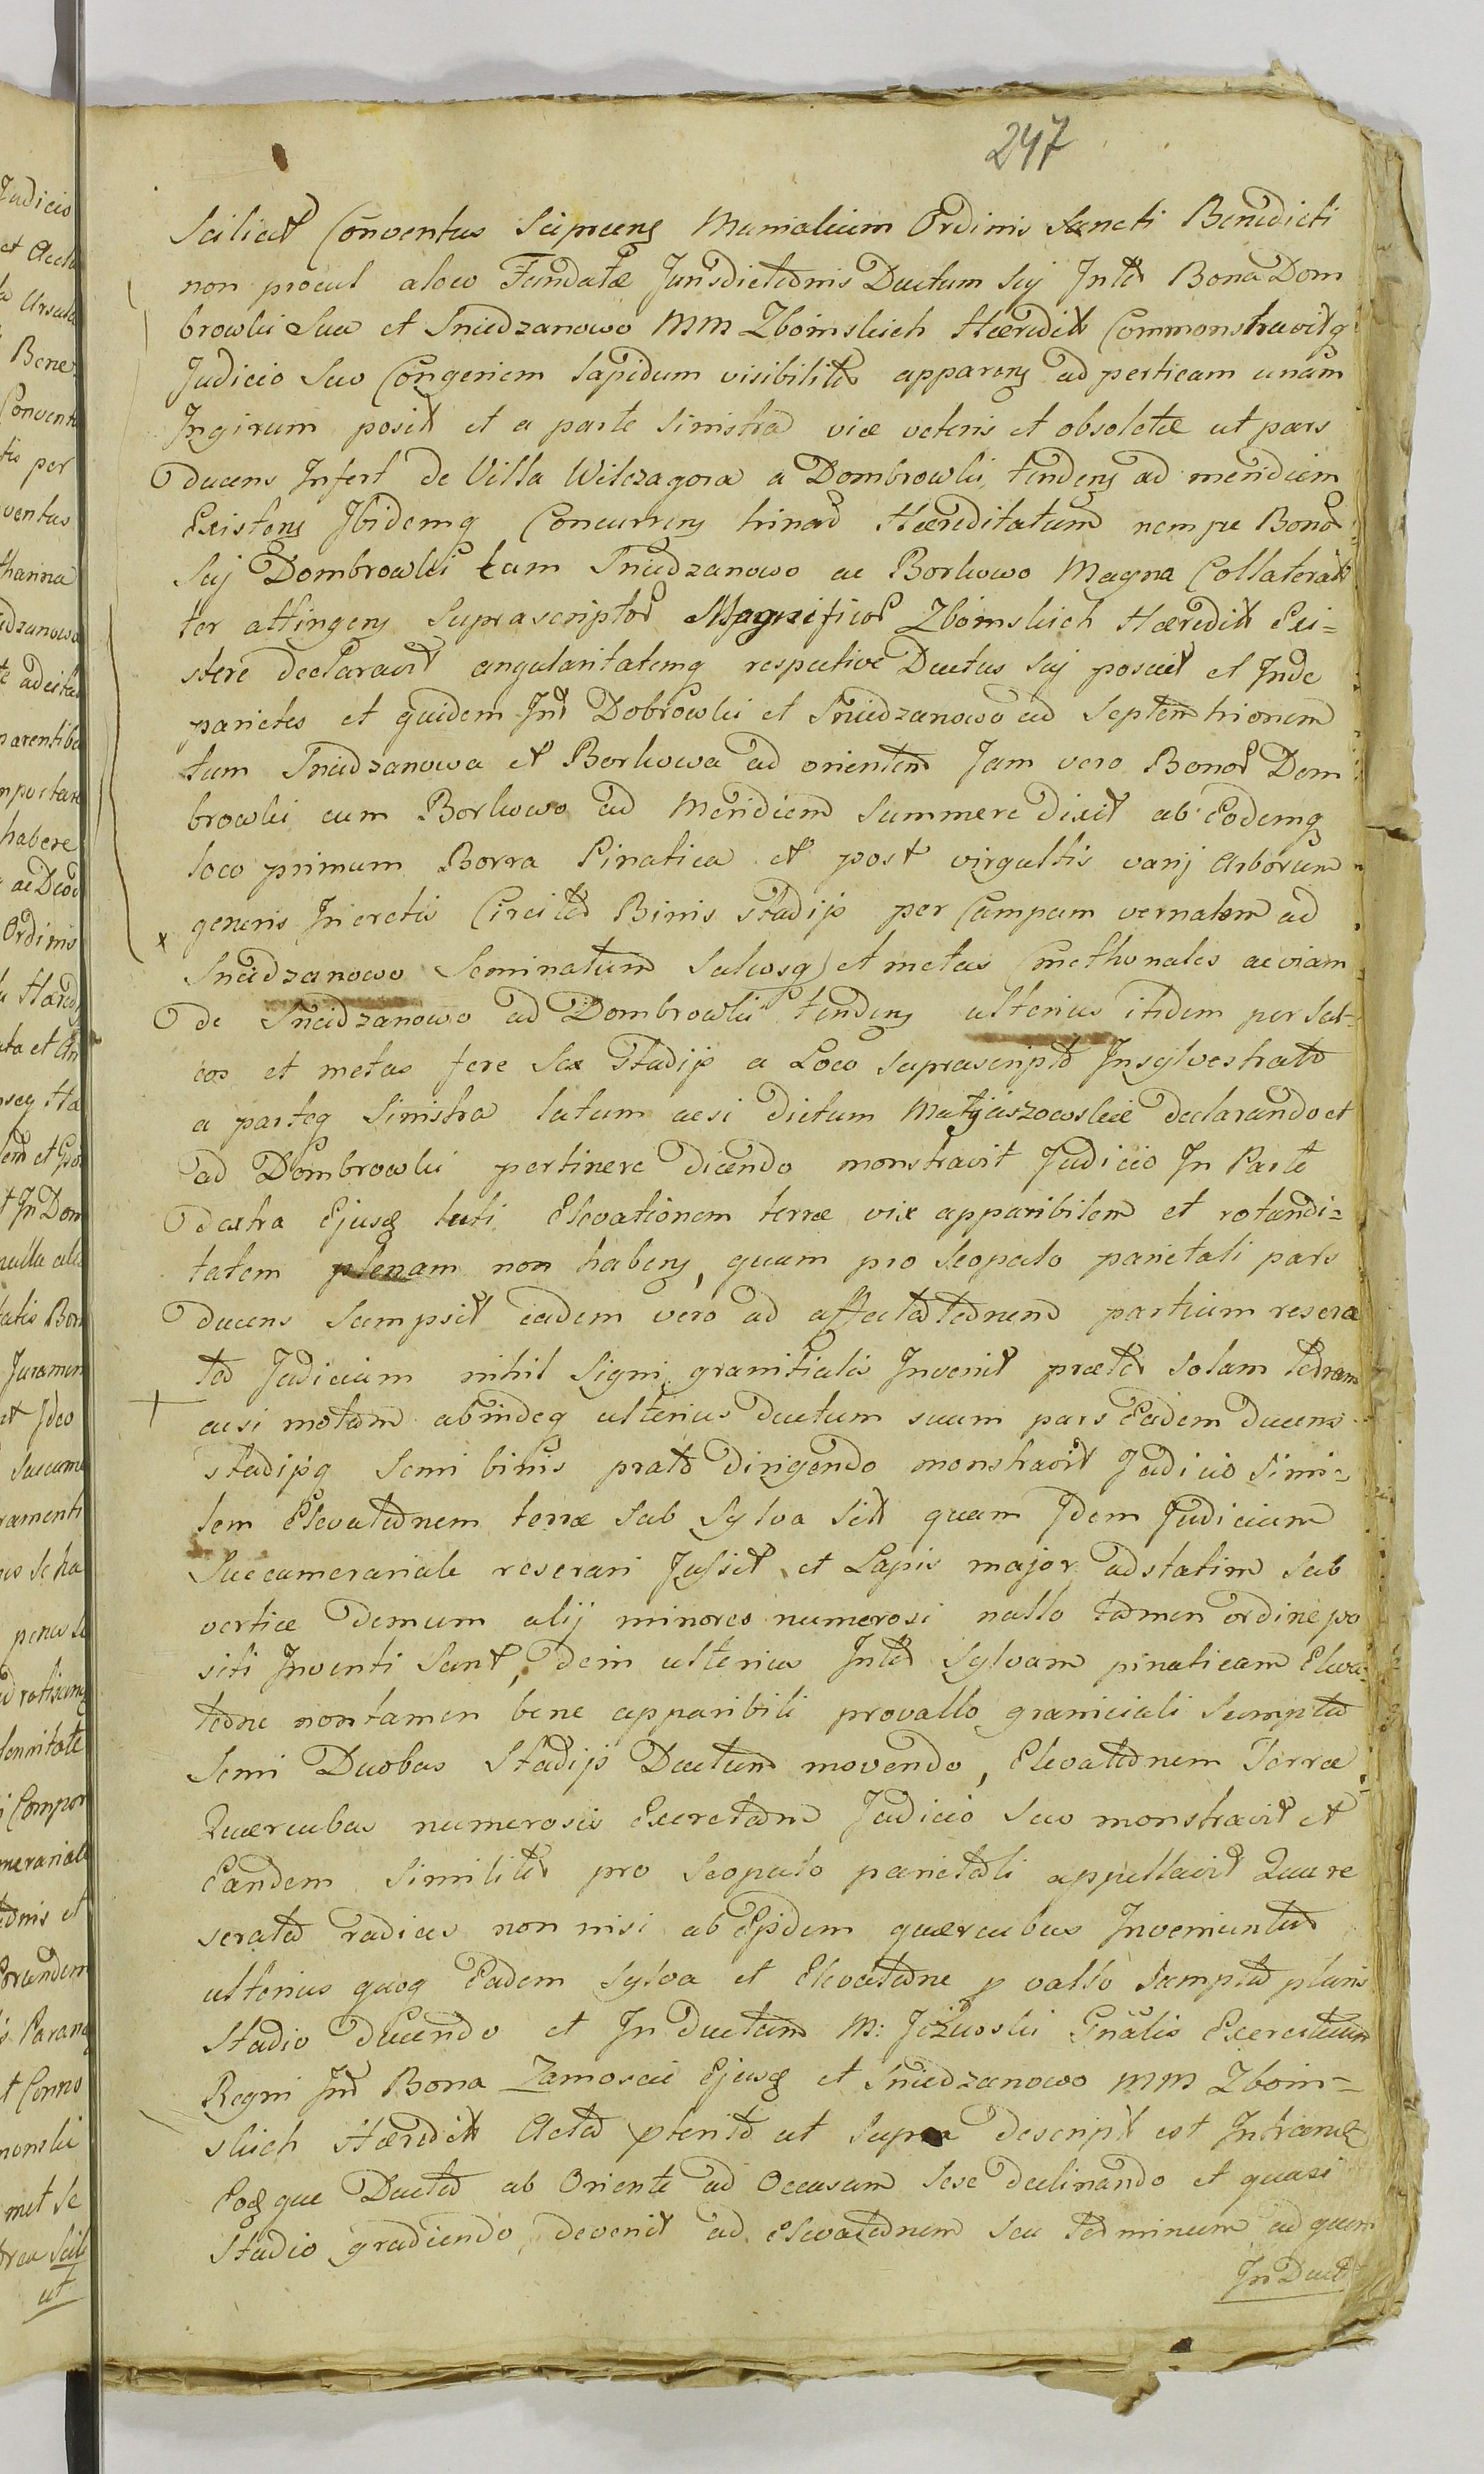 247
Judicio
et Acto
Ursula
Bene
Convent
per
ventus
tharina
arentib
mportare
habere
ac Deo
Ordinis
ta et
em et
t In Dom
nulla
Bon
Juramen
Ideo
Succame
ramenti
se ha
pena
Compor
merariale
Eorundem
t Conno
met se
ut
Sciliat Conventus Scipreens Munialium Ordinis Sancti Benedicti
non procul aloco Fundatæ Jurisdictõnis Ductum Sụj Intẽr Bona Dom
browki Sua et Sniedzanowo MM Zboinskich Hæredit Commonstravitq
Judicio Suo Congeriem Lapidum visibilitẽr apparens ad perticam unam
Ingirum posit et a parte Sinistra viæ veteris et obsoletæ ut pars
Ducens Infert de Villa Wilczagora a Dombrowki tendens ad meridiem
Existens Ibidemq Concurrens hinad Hæreditatum nempe Bonor
Suj Dombrowki tam Sniedzanowo ac Borkowo Magna Collaterali
ter attingens Suprascriptor Magnificor Zboinskich Hæredit Exi=
stere declaravit angularitatemq respective Ductus Suj posuit et Inde
parietes et quidem Intr Dobrowki et Sniedzanowo ad Septemtrionem
tum Sniedzanowa et Borkowa ad orientem Jam vero Bonor Dom
browki cum Borkowo ad Meridiem Summere dixit ab Eodemq
loco primum Borra Pinatica et post virgultis varij Arborum
generis Incretis Circitẽr Binis Stadijs per Campum vernalem ad
Sniedzanowo Seminatum Sulcosq et metas Cmethonales ac viam
de Sniedzanowo ad Dombrowki tendens ulterius itidem per Sul=
cos et metas fere Sex Stadijs a Loco Suprascripto Insylvestrato
a parteq Sinistra lutum acsi dictum Matyiaszowskie declarando et
ad Dombrowki pertinere dicendo monstravit Judicio In Parte
dextra Ejusq luti Elevationem terræ vix apparibilem et rotundi=
tatem plenam non habens, quam pro Scopulo parietali pars
Ducens Sumpsit eadem vero ad affectatõnem partium resera
ta Judicium nihil Signi granitialis Invenit prætẽr Solam terram
acsi motam abindeq ulterius ductum suum pars Eadem ducens
stadijsq Semi binis prato dirigendo monstravit Judicio Simi=
lem Elevatõnem terræ Sub Sylva Sit quam Idem Judicium
Succamerariale reserari Jussit et Lapis major adstatim Sub
vertice demum alij minores numerosi nullo tamen ordine po
siti Inventi Sunt, dein ulterius Intẽr Sylvam pinaticam Eleva=
tõne nontamen bene apparibili provallo graniciali Sumpta
Semi Duobus Stadijs Ductum movendo, Elevatõnem Terræ
Quærcubus numerosis Excretam Judicio Suo monstravit et
Eandem Similitẽr pro Scopulo parietali appellavit Qua re
serata radices non nisi ab Ejsdem quærcubus Inveniuntur
ulterius quoq Eadem Sylva et Elevatõne p vallo Sumpta pluris
Stadio Ducendo et In ductum M: Jeżewski Gnalis Exercituum
Regni Intr Bona Zamoscie Ejusq et Sniedzanowo MM Zboin=
skich Hæredit Acta pterita ut Supra descript est Intrans
Eoq que Ducta ab Oriente ad Occasum Sese declinando et quasi
Stadio gradiendo devenit ad elevatõnem seu terminum ad quem
In Duct